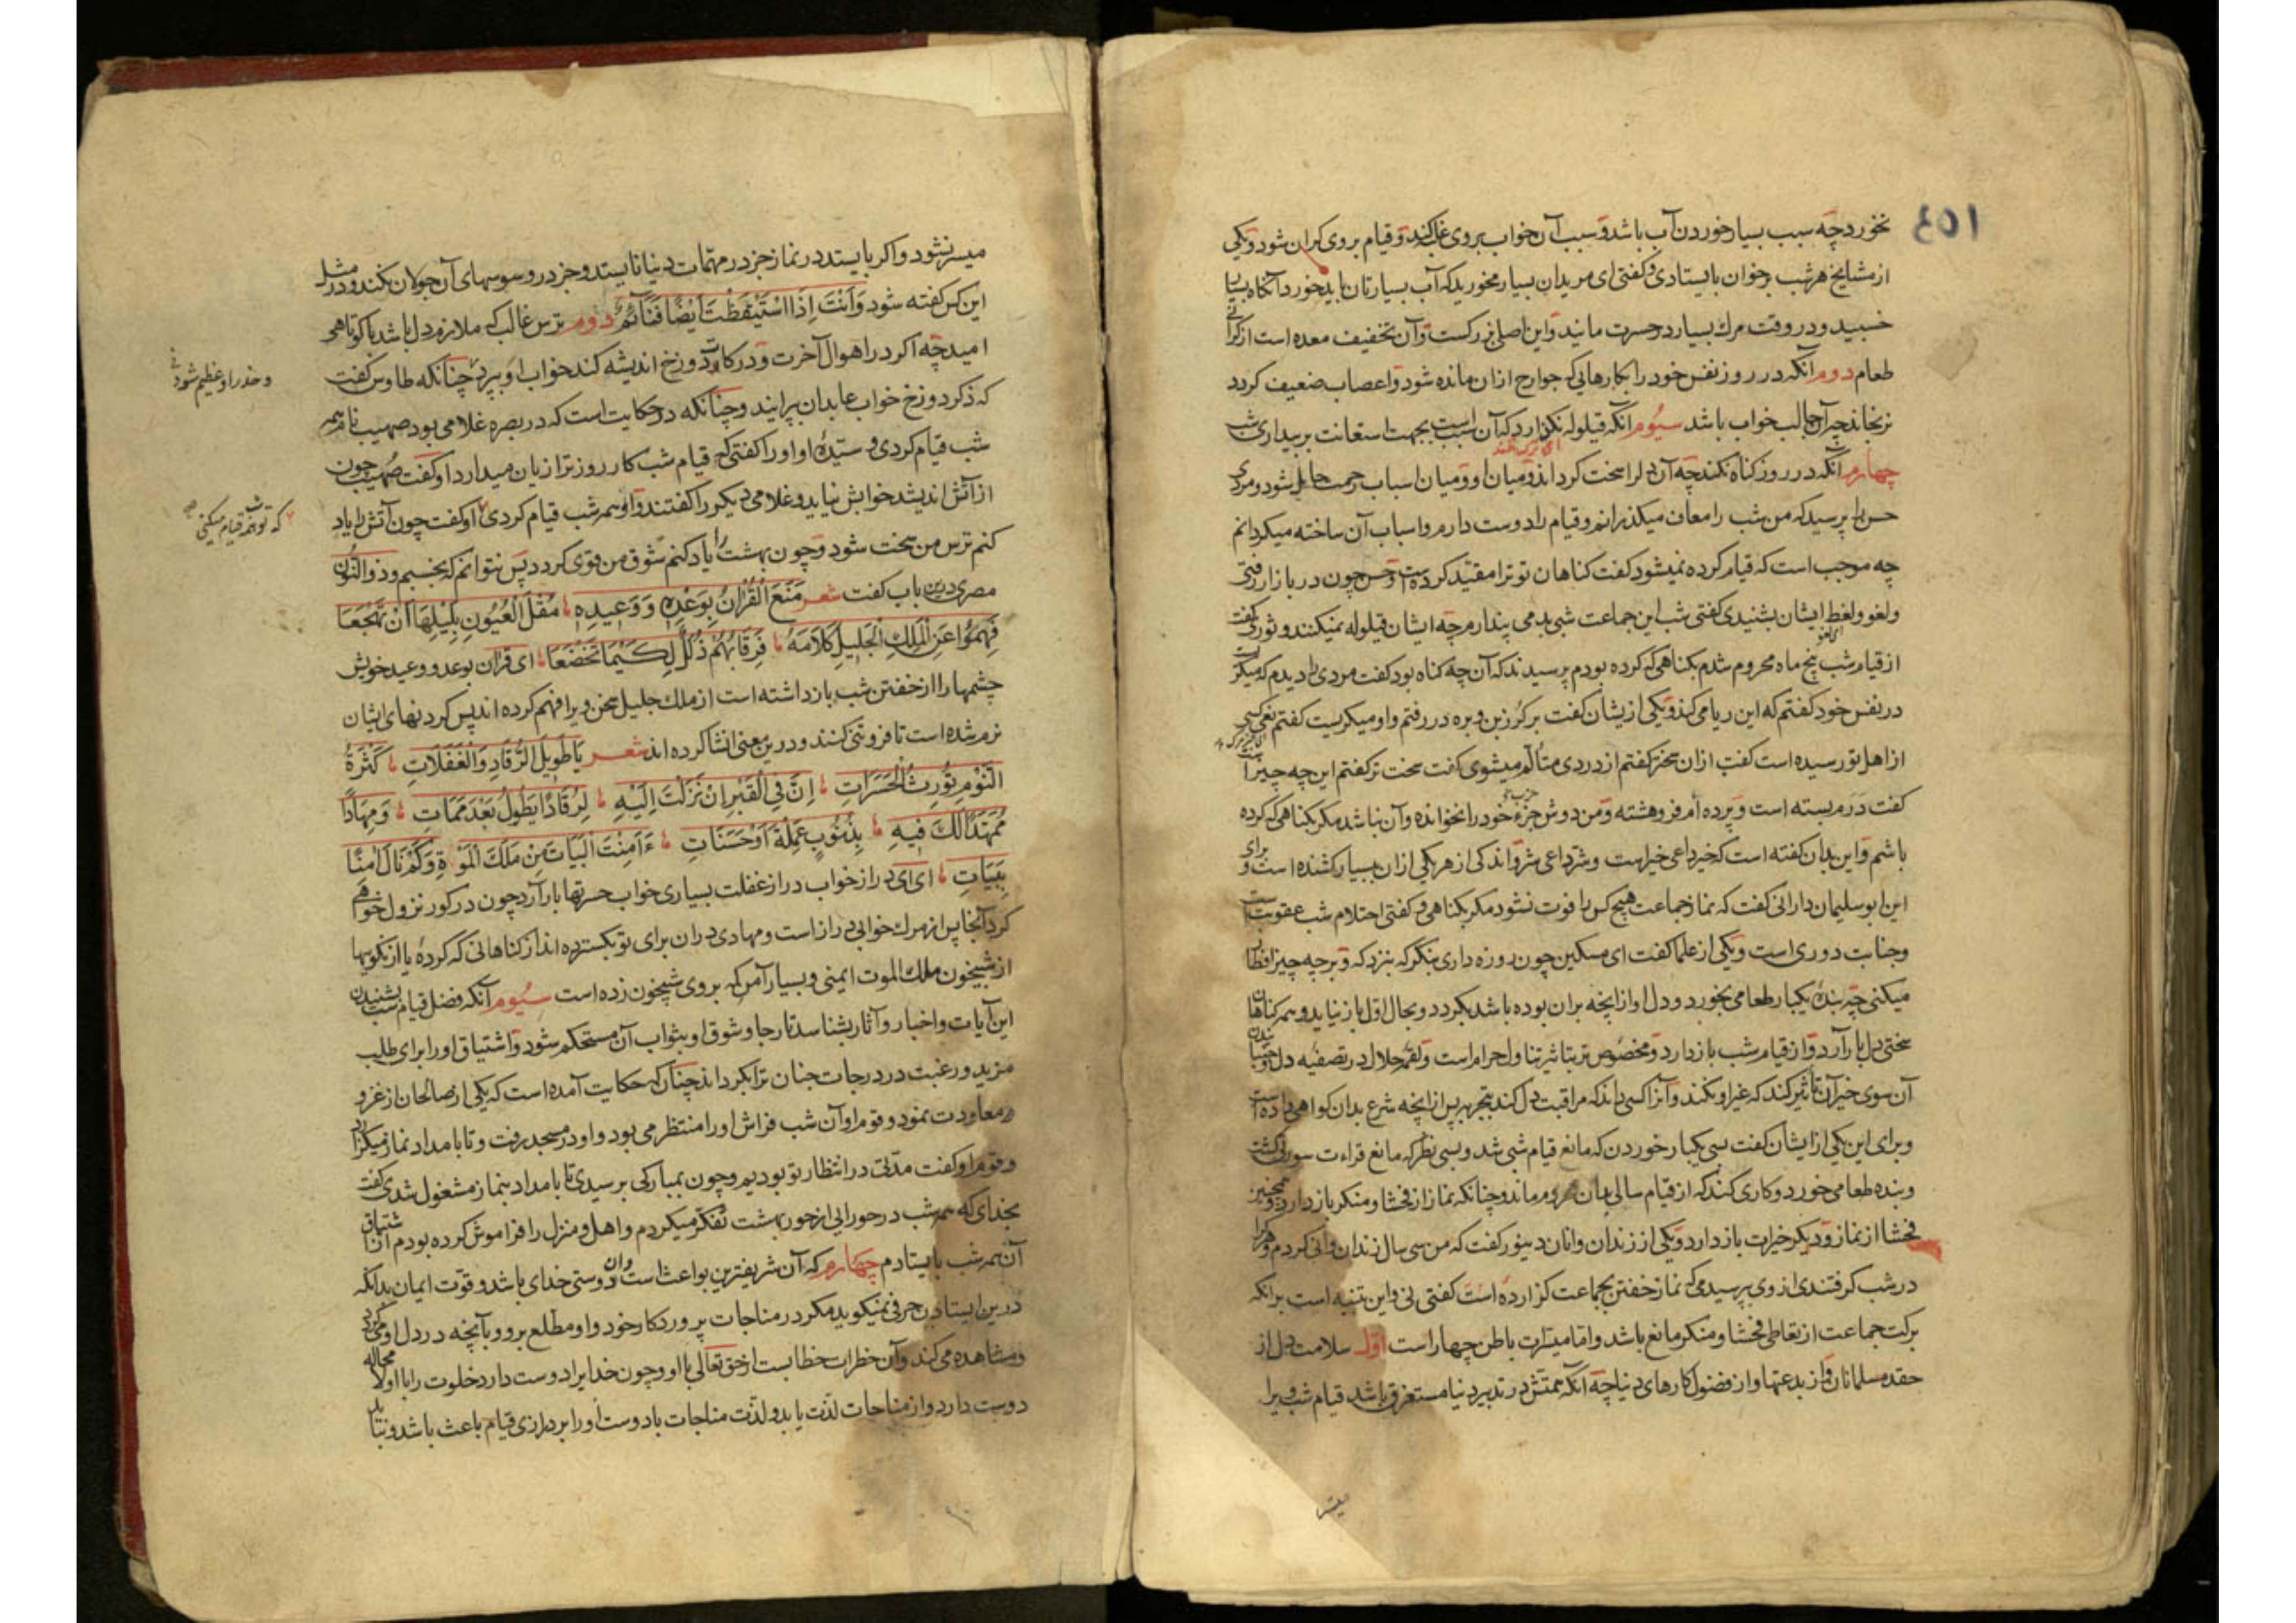 ١٥٤
نخورد چه سبب بسیار خوردن آب باشد و سبب آن خواب بروی غلبه کند و قیام بروی کران شود و یکی
از مشایخ هر شب بر خوان بایستادی و کفتی ای مریدان بسیار مخورید که آب بسیارتان باید خورد آنکاه بسیار
خسبید و در وقت مرك بسیار در حسرت مانید و این اصلی بزرکست و آن تخفیف معده است از کرانی
طعام دوم آنکه در روز نفس خود را بکارهایی که جوارح ازان مانده شود و اعصاب ضعیف کردد
نرنجاند چه آن جالب خواب باشد سیُوم آنکه قیلوله نکذارد که آن سنت است بجهت استعانت بر بیداری شب
ای ترك نکند
چهارم آنکه در روز کناه نکند چه آن دل را سخت کرداند و میان او و میان اسباب رحمت حایل شود و مردی
حسن را پرسید که من شب را معاف میکذرانم و قیام را دوست دارم و اسباب آن ساخته میکردانم
چه موجب است که قیام کرده نمیشود کفت کناهان تو ترا مقید کرده است و حسن چون در بازار رفتی
و لغو و لغط ایشان بشنیدی کفتی شب این جماعت شبی بد می پندارم چه ایشان قیلوله نمیکنند و ثوری کفت
از قیام شب پنج ماه محروم شدم بکناهی که کرده بودم پرسیدند که آن چه کناه بود کفت مردی را دیدم که میکریست
در نفس خود کفتم که این ریا می کند و یکی از یشان کفت بر کرز بن وبره در رفتم و او میکریست کفتم نعی کسی
از اهل تو رسیده است کفت ازان سختر کفتم از دردی متألم میشوی کفت سخت تر کفتم این چه چیز است
کفت دَرم بسته است و پرده ام فرو هشته و من دوش حزب خود را نخوانده و آن نباشد مکر بکناهی که کرده
باشم و این بدان کفته است که خیر داعی خیراست و شر داعی شر و اندکی از هر یکی ازان ببسیار کشنده است و برای
این ابوسلیمان دارانی کفت که نماز جماعت هیچ کس را فوت نشود مکر بکناهی و کفتی احتلام شب عقوبت است
و جنابت دوری است و یکی از علما کفت ای مسکین چون روزه داری بنکر که بنزد که و بر چه چیز افطار
میکنی چه بنده یکبار طعامی بخورد و دل او از انچه بران بوده باشد بکردد و بحال اول باز نیاید و همه کناهان
سختی دل بار آرد و از قیام شب باز دارد و مخصوص تر بتاثیر تناول حرام است و لقمهٔ حلال در تصفیه دل و جنبانیدن
آن سوی خیر آن تاثیر کند که غیر او نکند و آنرا کسی داند که مراقبت دل کند بتجربه پس از انچه شرع بدان کواهی داده است
و برای این یکی از ایشان کفت بسی یکبار خوردن که مانع قیام شبی شد و بسی نظر که مانع قراءت سورتی کشت
و بنده طعامی خورد و کاری کند که از قیام سالی بدان محروم ماند و چنانکه نماز از فحشا و منکر باز دارد و همچنین
فحشا از نماز و دیکر خیرات باز دارد و یکی از زندان وانان دینور کفت که من سی سال زندان وانی کردم و هرکرا
در شب کرفتندی از وی پرسیدمی که نماز خفتن بجماعت کزارده است کفتی نی و این تنبیه است برانکه
برکت جماعت از تعاطی فحشا و منکر مانع باشد و اما میسرات باطن چهار است اوّل سلامت دل از
حقد مسلمانان و از بدعتها و از فضول کارهای دنیا چه آنکه همتش در تدبیر دنیا مستغرق باشد قیام شب ویرا
میسر
میسر نشود و اکر بایستد در نماز جز در مهمّات دنیا نایستد و جز در وسوسهای آن جولان نکند و در مثل
این کس کفته شود وَاَنْتَ اِذَا اسْتَیْقَظْتَ اَیْضًا فَنَائِمٌ دوم ترس غالب که ملازم دل باشد با کوتاهی
امید چه اکر در اهوال آخرت و درکات دوزخ اندیشه کند خواب او بپرد چنانکه طاوس کفت
و حذر او عظیم شود
که ذکر دوزخ خواب عابدان بپرایند و چنانکه در حکایت است که در بصره غلامی بود صهیب نام همه
شب قیام کردی و ستیدهٔ او او را کفتی که قیام شب کار روز ترا زیان میدارد او کفت صُهیب چون
از آتش اندیشد خوابش نیاید و غلامی دیکر را کفتند و او همه شب قیام کردی او کفت چون آتش را یاد
که تو همه شب قیام میکنی
کنم ترس من سخت شود و چون بهشت را یاد کنم شوق من قوی کردد پس نتوانم که بخسبم و ذو النّون
مصری درین باب کفت شعر مَنَعَ الْقُرْآنُ بِوَعْدِهِ وَ وَعِیدِهِ مُقَلَ الْعُیُونِ بِلَیْلِهَا اَنْ تَهْجَعَا
فَهِمُوْا عَنِ الْمَلِكِ الْجَلِیلِ کَلَامَهُ فَرِقَابُهُمْ ذُلُلٌ لِکَیْمَا تَخْضَعَا ای قرآن بوعد و وعید خویش
چشمها را از خفتن شب باز داشته است از ملك جلیل سخن ویرا فهم کرده اند پس کردنهای ایشان
نرم شده است تا فروتنی کنند و درین معنی انشا کرده اند شعر یَا طَوِیلَ الرُّقَادِ وَالْغَفَلَاتِ کَثْرَةُ
النَّوْمِ تُورِثُ الْحَسَرَاتِ اِنَّ فِی الْقَبْرِ اِنْ نَزَلْتَ اِلَیْهِ لَرُقَادًا یَطُولُ بَعْدَ مَمَاتِ وَمِهَادًا
مُمَهَّدًا لَكَ فِیهِ بِذُنُوبٍ عَمِلْتَ اَوْ حَسَنَاتِ ءَاَمِنْتَ الْبَیَاتَ مِنْ مَلَكِ الْمَوْتِ وَکَمْ نَالَ اٰمِنًا
بِبَیَاتِ ای ای دراز خواب دراز غفلت بسیاری خواب حسرتها بار آرد چون در کور نزول خواهی
کرد آنجا پس از مرك خوابی دراز است و مهادی دران برای تو بکسترده اند از کناهانی که کردهٔ یا از نکوییها
از شبیخون ملك الموت ایمنی و بسیار آمن که بروی شبیخون زده است سیُوم آنکه فضل قیام شب بشنیدن
این آیات و اخبار و آثار بشناسد تا رجا و شوق او بثواب آن مستحکم شود و اشتیاق او را برای طلب
مزید و رغبت در درجات جنان برانکرداند چنان که حکایت آمده است که یکی از صالحان از غزو
معاودت نمود و قوم او آن شب فراش او را منتظر می بود و او در مسجد رفت و تا بامداد نماز میکزارد
و قوم او کفت مدّتی در انتظار تو بودیم و چون بمبارکی برسیدی تا بامداد بنماز مشغول شدی کفت
بخدای که همه شب در حورایی از حور بهشت تفکر میکردم و اهل و منزل را فراموش کرده بودم از اشتیاق
آن همه شب بایستادم چهارم که آن شریفترین بواعث است و آن دوستی خدای باشد و قوّت ایمان بدانکه
درین ایستادن حرفی نمیکوید مکر در مناجات پروردکار خود و او مطلع برو و بآنچه در دل او میکردد
و مشاهده می کند و آن خطرات خطابست از حق تعالی با او و چون خدایرا دوست دارد خلوت را با او لا محاله
دوست دارد و از مناجات لذّت یابد و لذّت مناجات با دوست او را بر درازی قیام باعث باشد و نباید